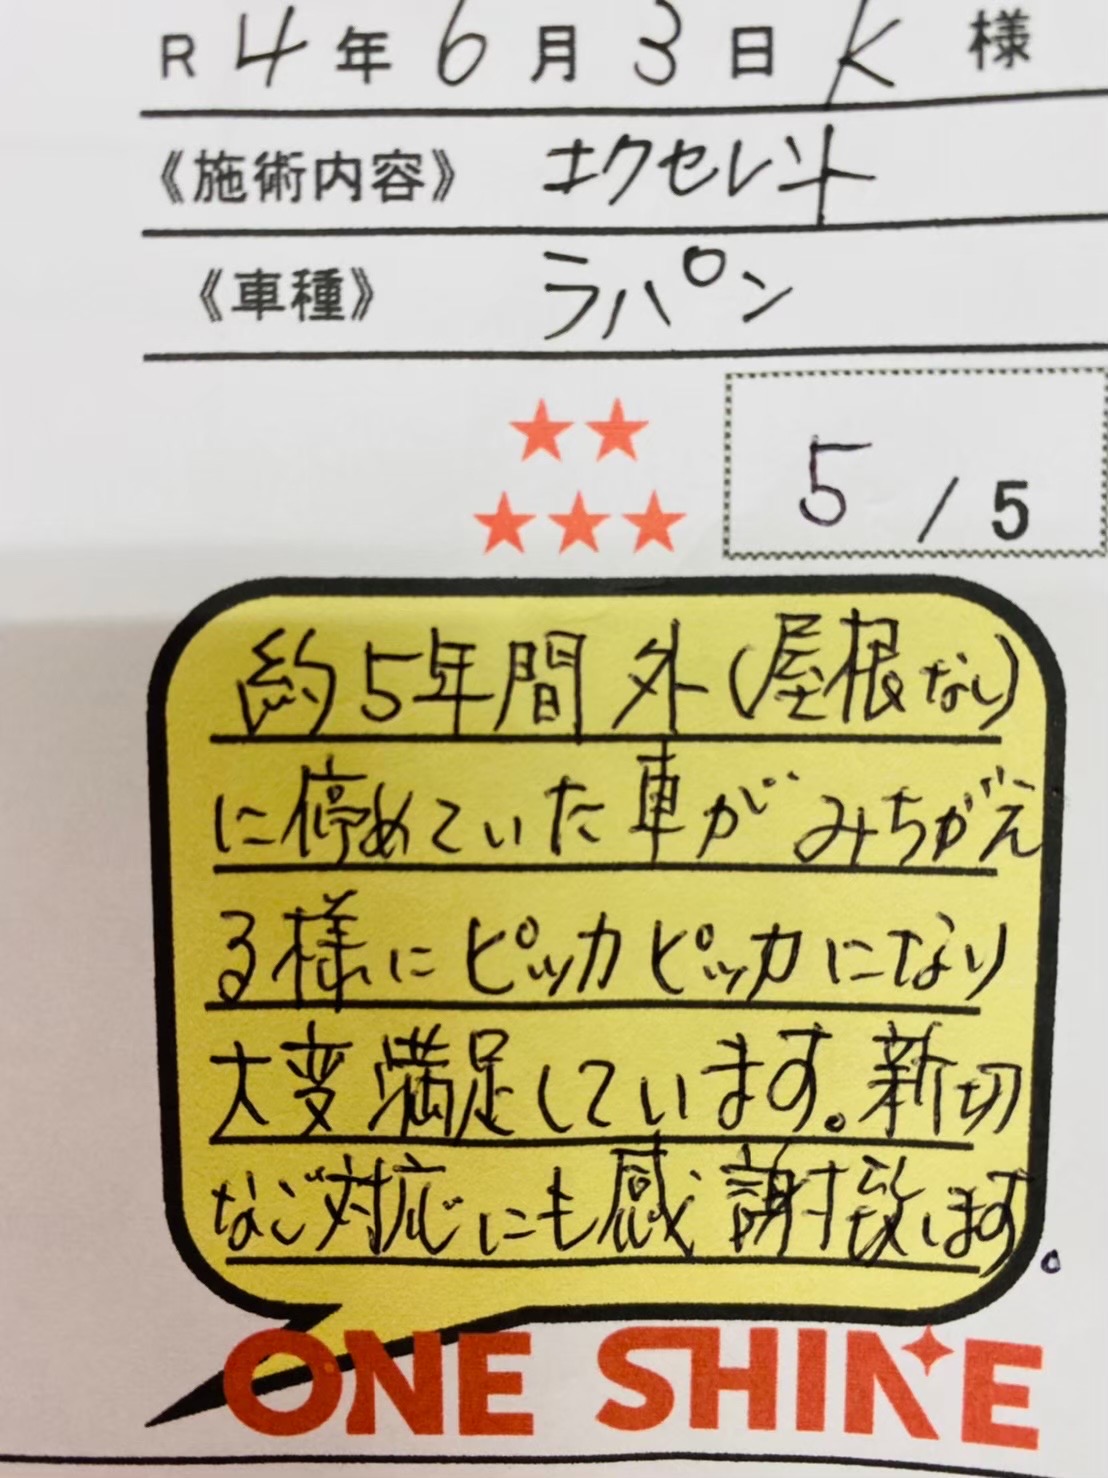 R 4年 6月 3日 K 様
《施術内容》 エクセレント
《車種》 ラパン
★★
★★★
5 / 5
約5年間 外(屋根なし)
に停めていた車がみちがえ
る様にピッカピッカになり
大変満足しています。新切
なご対応にも感謝致します。
ONE SHINE